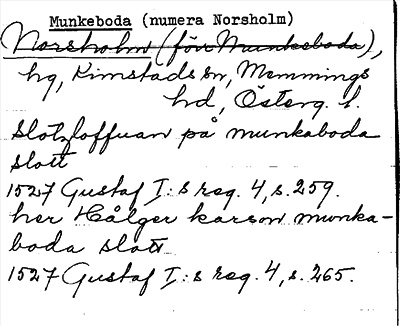 Munkeboda (numera Norsholm)
Norsholm (förr Munkeboda),
hg, Kimstads sn, Memmings
hd, Österg. l.
slotzloffuan på munkaboda
slott
1527 Gustaf I:s reg. 4, s. 259.
her Hålger karson munka-
boda slott
1527 Gustaf I:s reg. 4, s. 265.